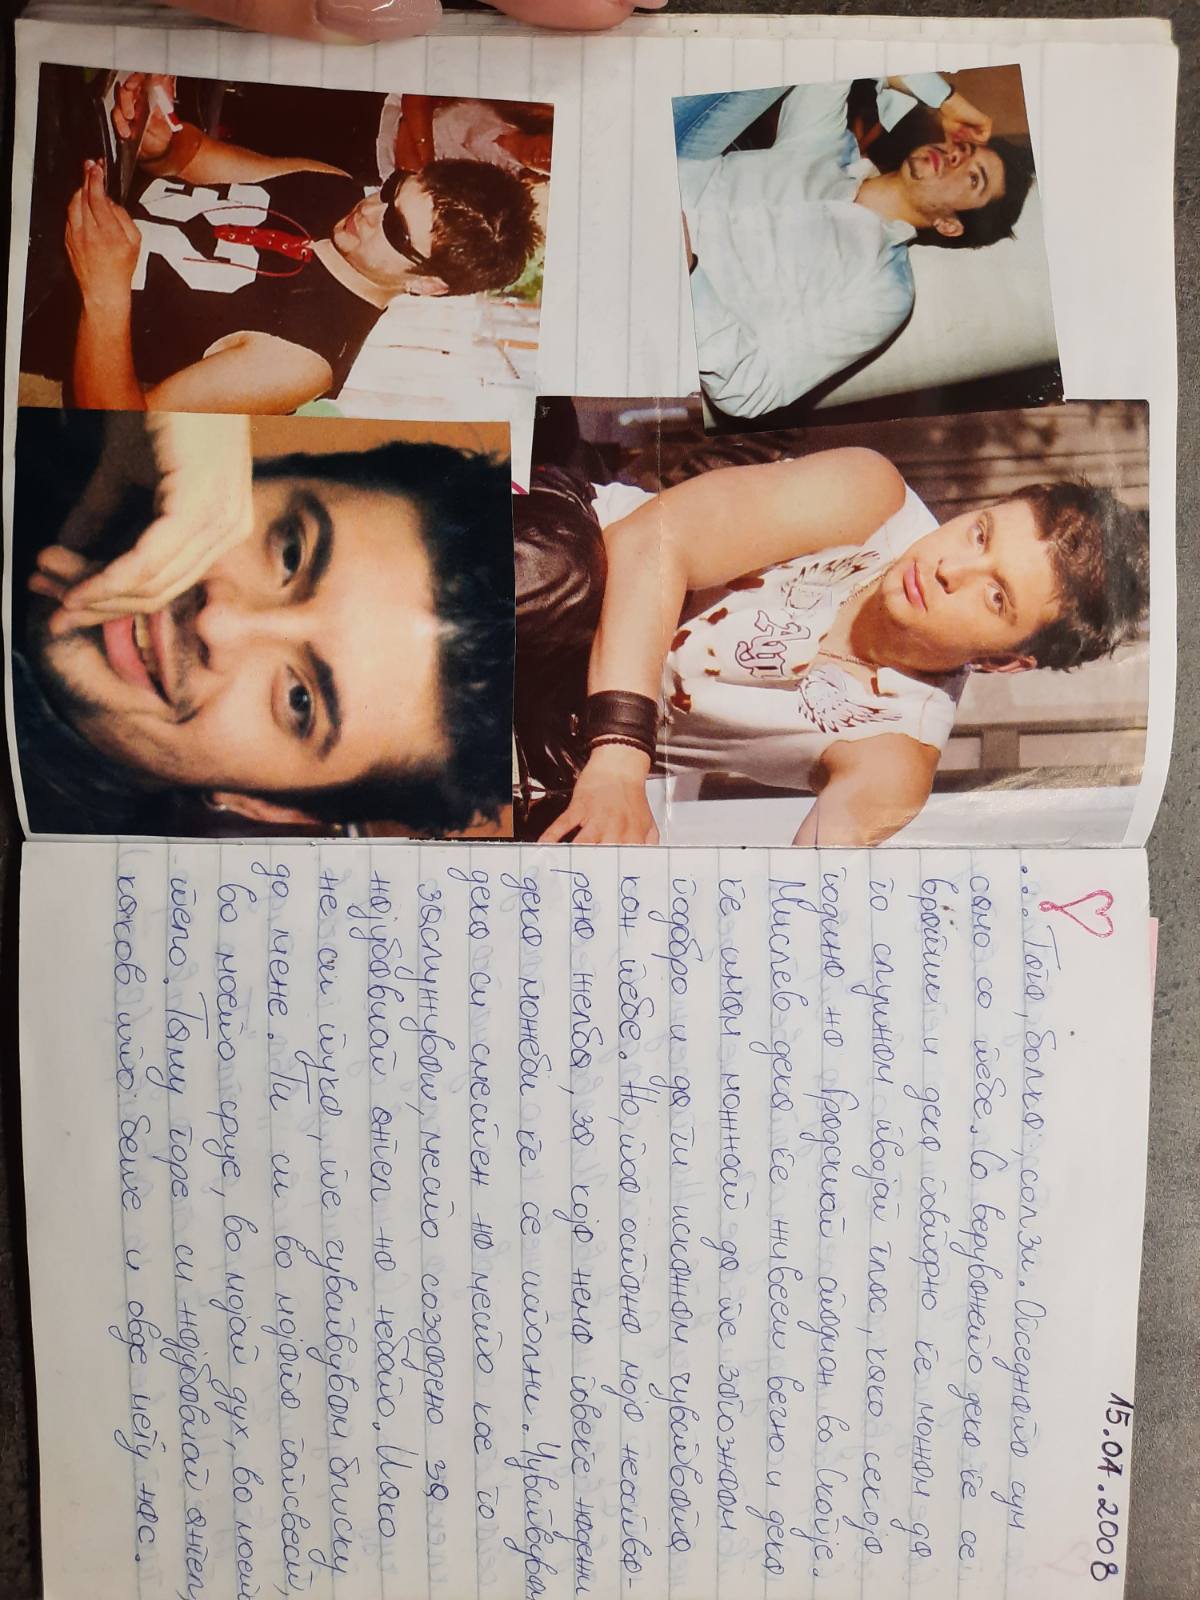 15.01.2008
... Тага, болка, солзи. Опседната сум
само со тебе. Со верувањето дека ќе се
вратиш и дека повторно ќе можам да
го слушнам твојот глас, како секоја
година на Градскиот стадион во Скопје.
Мислев дека ќе живееш вечно и дека
ќе имам можност да те запознаам
подобро и да ги искажам чувствата
кон тебе. Но, тоа остана моја неоства-
рена желба, за која нема повеќе надежи
дека можеби ќе се исполни. Чувствувам
дека си сместен на место кое го
заслужуваш, место создадено за
најубавиот ангел на небото. Иако
не си тука, те чувствувам блиску
до мене. Ти си во мојата потсвест,
во моето срце, во мојот дух, во моето
тело. Таму горе си најубавиот ангел,
каков што беше и овде меѓу нас.